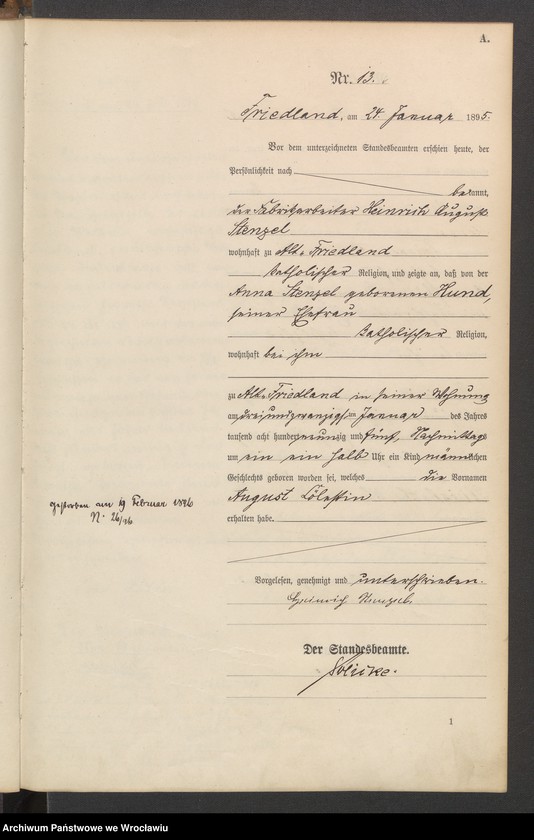 A.
Nr. 13.
Friedland, am 24. Januar 1895.
Vor dem unterzeichneten Standesbeamten erschien heute, der
Persönlichkeit nach
bekannt,
der Fabrikarbeiter Heinrich August
Stenzel
wohnhaft zu Alt-Friedland
katholischer Religion, und zeigte an, daß von der
Anna Stenzel geborenen Hund,
seiner Ehefrau
katholischer Religion,
wohnhaft bei ihm
zu Alt-Friedland in seiner Wohnung
am dreiundzwanzigsten Januar des Jahres
tausend acht hundert neunzig und fünf, Nachmittags
um ein ein halb Uhr ein Kind männlichen
Geschlechts geboren worden sei, welches die Vornamen
August Cölestin
erhalten habe.
gestorben am 19 Februar 1896
N. 26/96
Vorgelesen, genehmigt und unterschrieben.
Heinrich Stenzel.
Der Standesbeamte.
1
Archiwum Państwowe we Wrocławiu